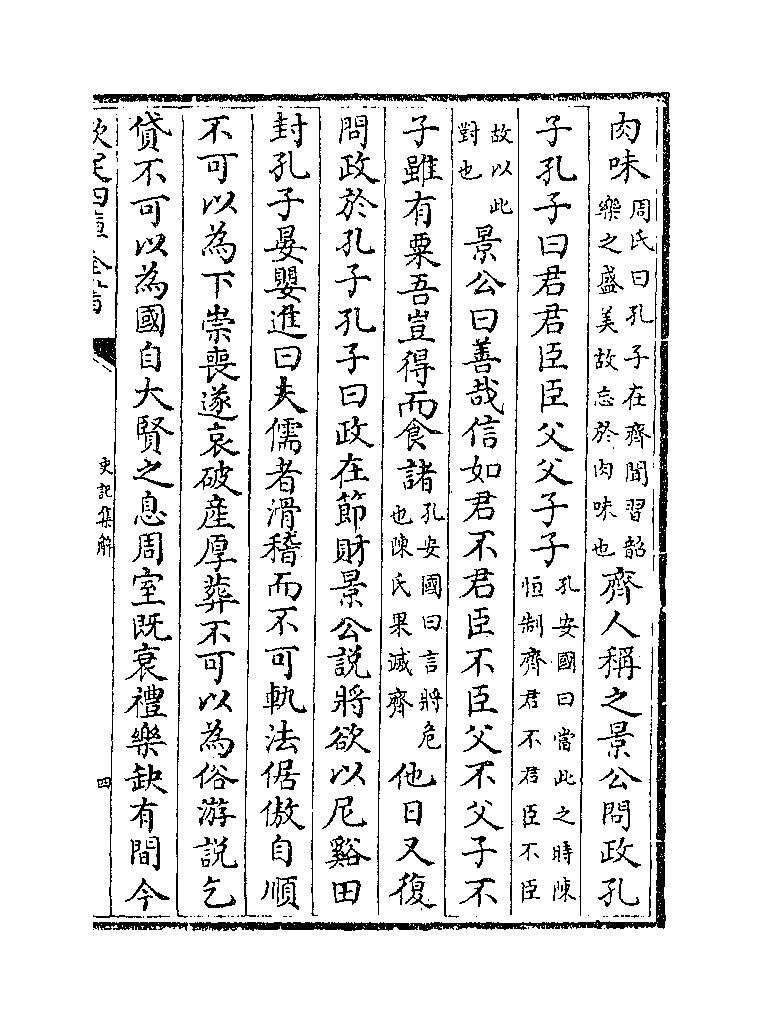 肉味周氏曰孔子在齊聞習韶樂之盛美故忘於肉味也齊人稱之景公問政孔
子孔子曰君君臣臣父父子子孔安國曰當此之時陳恒制齊君不君臣不臣
故以此對也景公曰善哉信如君不君臣不臣父不父子不
子雖有粟吾豈得而食諸孔安國曰言將危也陳氏果滅齊他日又復
問政於孔子孔子曰政在節財景公說將欲以尼谿田
封孔子晏嬰進曰夫儒者滑稽而不可軌法倨傲自順
不可以為下崇喪遂哀破産厚葬不可以為俗游說乞
貸不可以為國自大賢之息周室既衰禮樂缺有間今
欽定四庫全書
史記集解
四